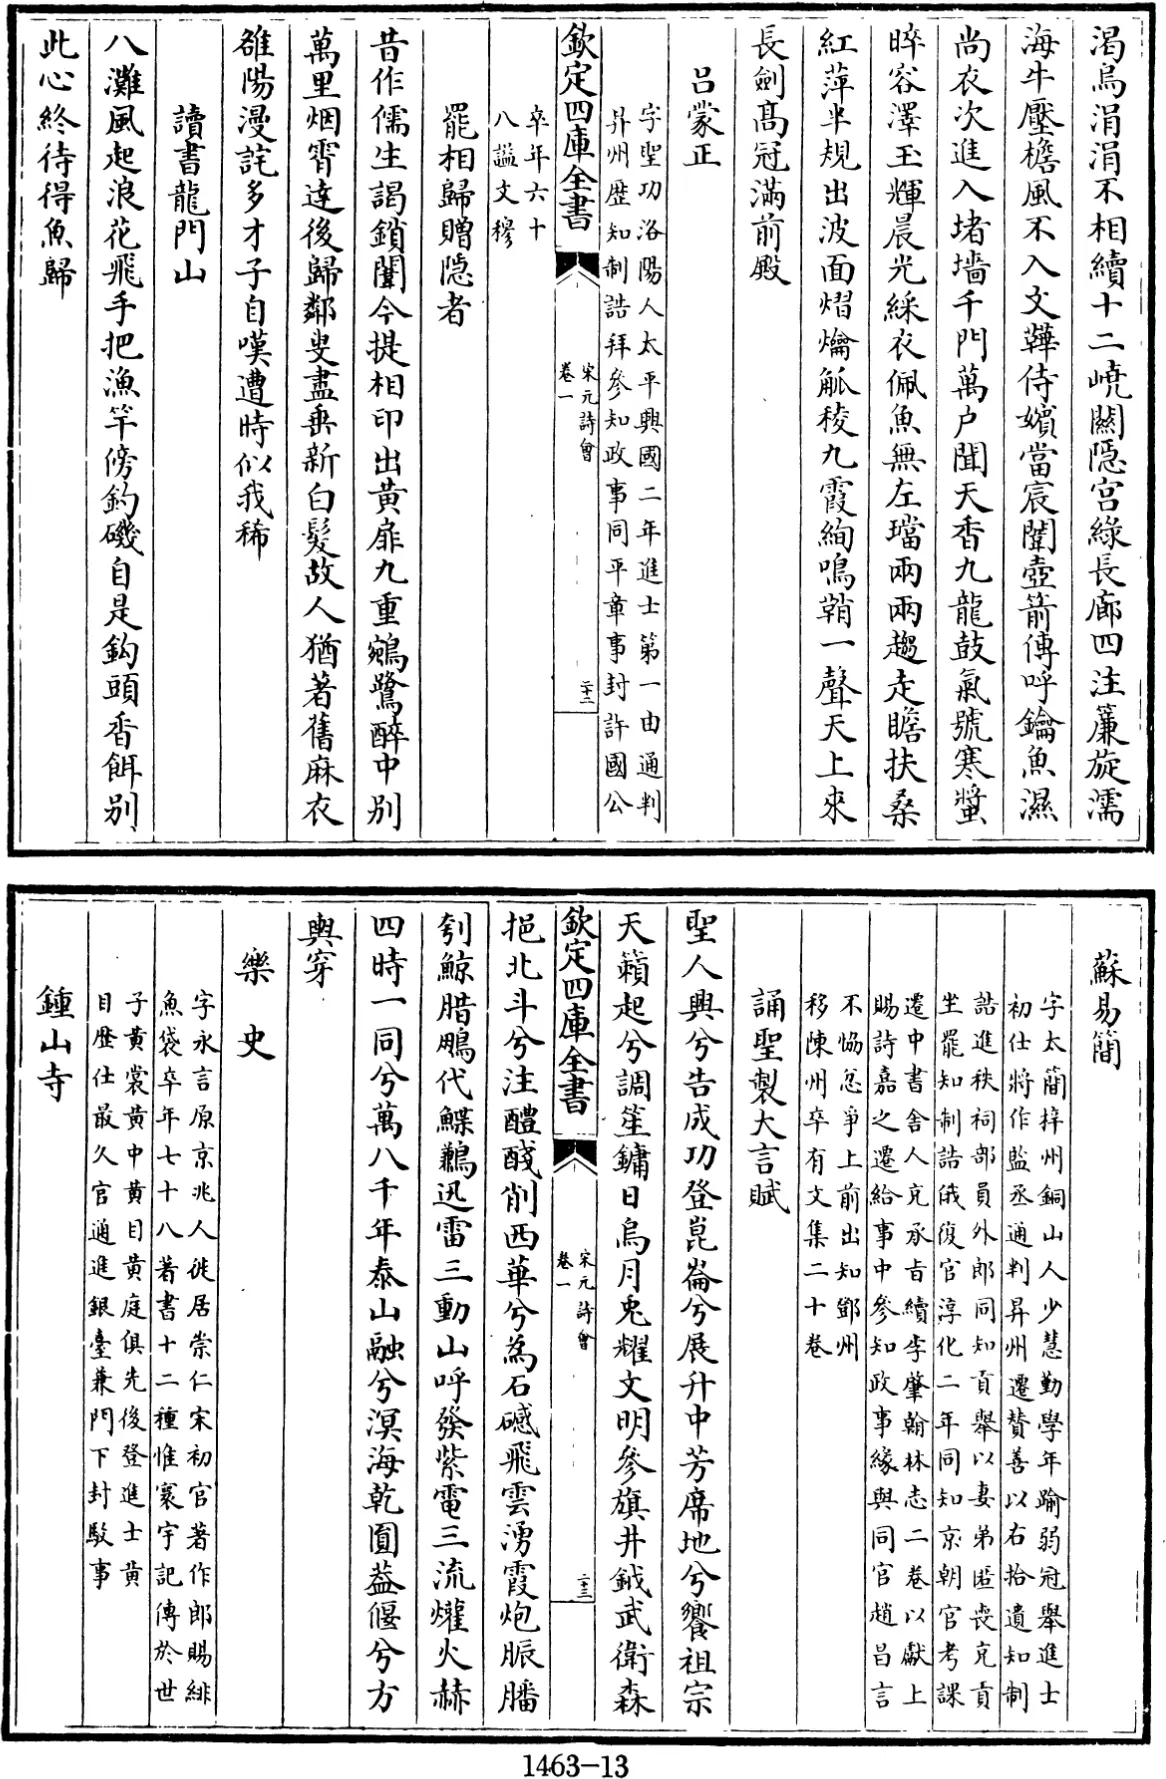 渴烏涓涓不相續十二嶢闕隠宫綠長廊四注簾旋濡
海牛壓檐風不入文鞾侍嬪當宸闈壺箭傳呼鑰魚濕
尚衣次進入堵墻千門萬户聞天香九龍鼓氣號寒螿
晬容澤玉輝晨光綵衣佩魚無左璫兩兩趨走瞻扶桑
紅萍半規出波面熠爚觚稜九霞絢鳴鞘一聲天上來
長劍髙冠滿前殿
吕蒙正
字聖功洛陽人太平興國二年進士第一由通判
昇州歴知制誥拜參知政事同平章事封許國公
欽定四庫全書
宋元詩會
卷一
二十二
卒年六十
八諡文穆
罷相歸贈隠者
昔作儒生謁鎖闈今提相印出黄扉九重鵷鷺醉中别
萬里烟霄達後歸鄰叟盡垂新白髮故人猶著舊麻衣
雒陽漫詫多才子自嘆遭時似我稀
讀書龍門山
八灘風起浪花飛手把漁竿傍釣磯自是鈎頭香餌别
此心終待得魚歸
蘇易簡
字太簡梓州銅山人少慧勤學年踰弱冠舉進士
初仕將作監丞通判昇州遷賛善以右拾遺知制
誥進秩祠部員外郎同知貢舉以妻弟匿喪充貢
坐罷知制誥俄復官淳化二年同知京朝官考課
遷中書舍人充承㫖續李肇翰林志二卷以獻上
賜詩嘉之遷給事中參知政事縁與同官趙昌言
不恊忿爭上前出知鄧州
移陳州卒有文集二十卷
誦聖製大言賦
聖人興兮告成功登崑崙兮展升中芳席地兮饗祖宗
天籟起兮調笙鏞日烏月兎耀文明參旗井鉞武衛森
欽定四庫全書
宋元詩會
卷一
二十三
挹北斗兮注醴醆削西華兮為石磩飛雲湧霞炮脤膰
刳鯨腊鵰代鰈鶼迅雷三動山呼發紫電三流爟火赫
四時一同兮萬八千年泰山融兮溟海乾圓葢偃兮方
輿穿
樂史
字永言原京兆人徙居崇仁宋初官著作郎賜緋
魚袋卒年七十八著書十二種惟寰宇記傳於世
子黄裳黄中黄目黄庭俱先後登進士黄
目歴仕最久官通進銀臺兼門下封駁事
鍾山寺
1463-13